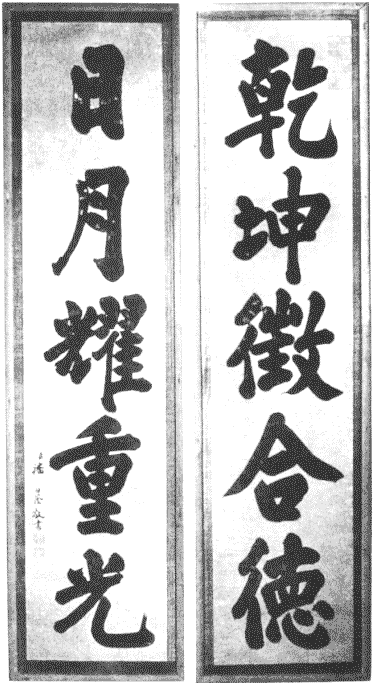 乾坤徴合德
日月耀重光